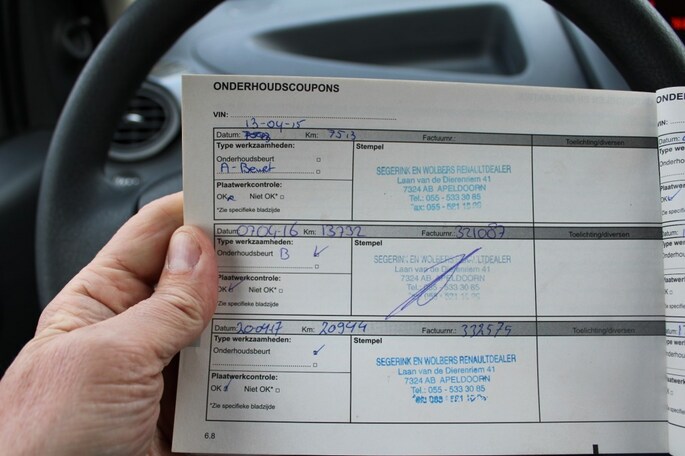 ONDERHOUDSCOUPONS
VIN:
13-04-15
Datum: Km: 7513 Factuurnr.: Toelichting/diversen
Type werkzaamheden: Stempel
Onderhoudsbeurt
A-Beurt
Plaatwerkcontrole:
OK Niet OK*
*Zie specifieke bladzijde
SEGERINK EN WOLBERS RENAULTDEALER
Laan van de Dierenriem 41
7324 AB APELDOORN
Tel.: 055 - 533 30 85
Datum: 070416 Km: 13732 Factuurnr.: 321087 Toelichting/diversen
Type werkzaamheden: Stempel
Onderhoudsbeurt B
Plaatwerkcontrole:
OK Niet OK*
*Zie specifieke bladzijde
SEGERINK EN WOLBERS RENAULTDEALER
Laan van de Dierenriem 41
7324 AB APELDOORN
Tel.: 055 - 533 30 85
Datum: 200417 Km: 20944 Factuurnr.: 332575 Toelichting/diversen
Type werkzaamheden: Stempel
Onderhoudsbeurt
Plaatwerkcontrole:
OK Niet OK*
*Zie specifieke bladzijde
SEGERINK EN WOLBERS RENAULTDEALER
Laan van de Dierenriem 41
7324 AB APELDOORN
Tel.: 055 - 533 30 85
6.8
ONDER
VIN: